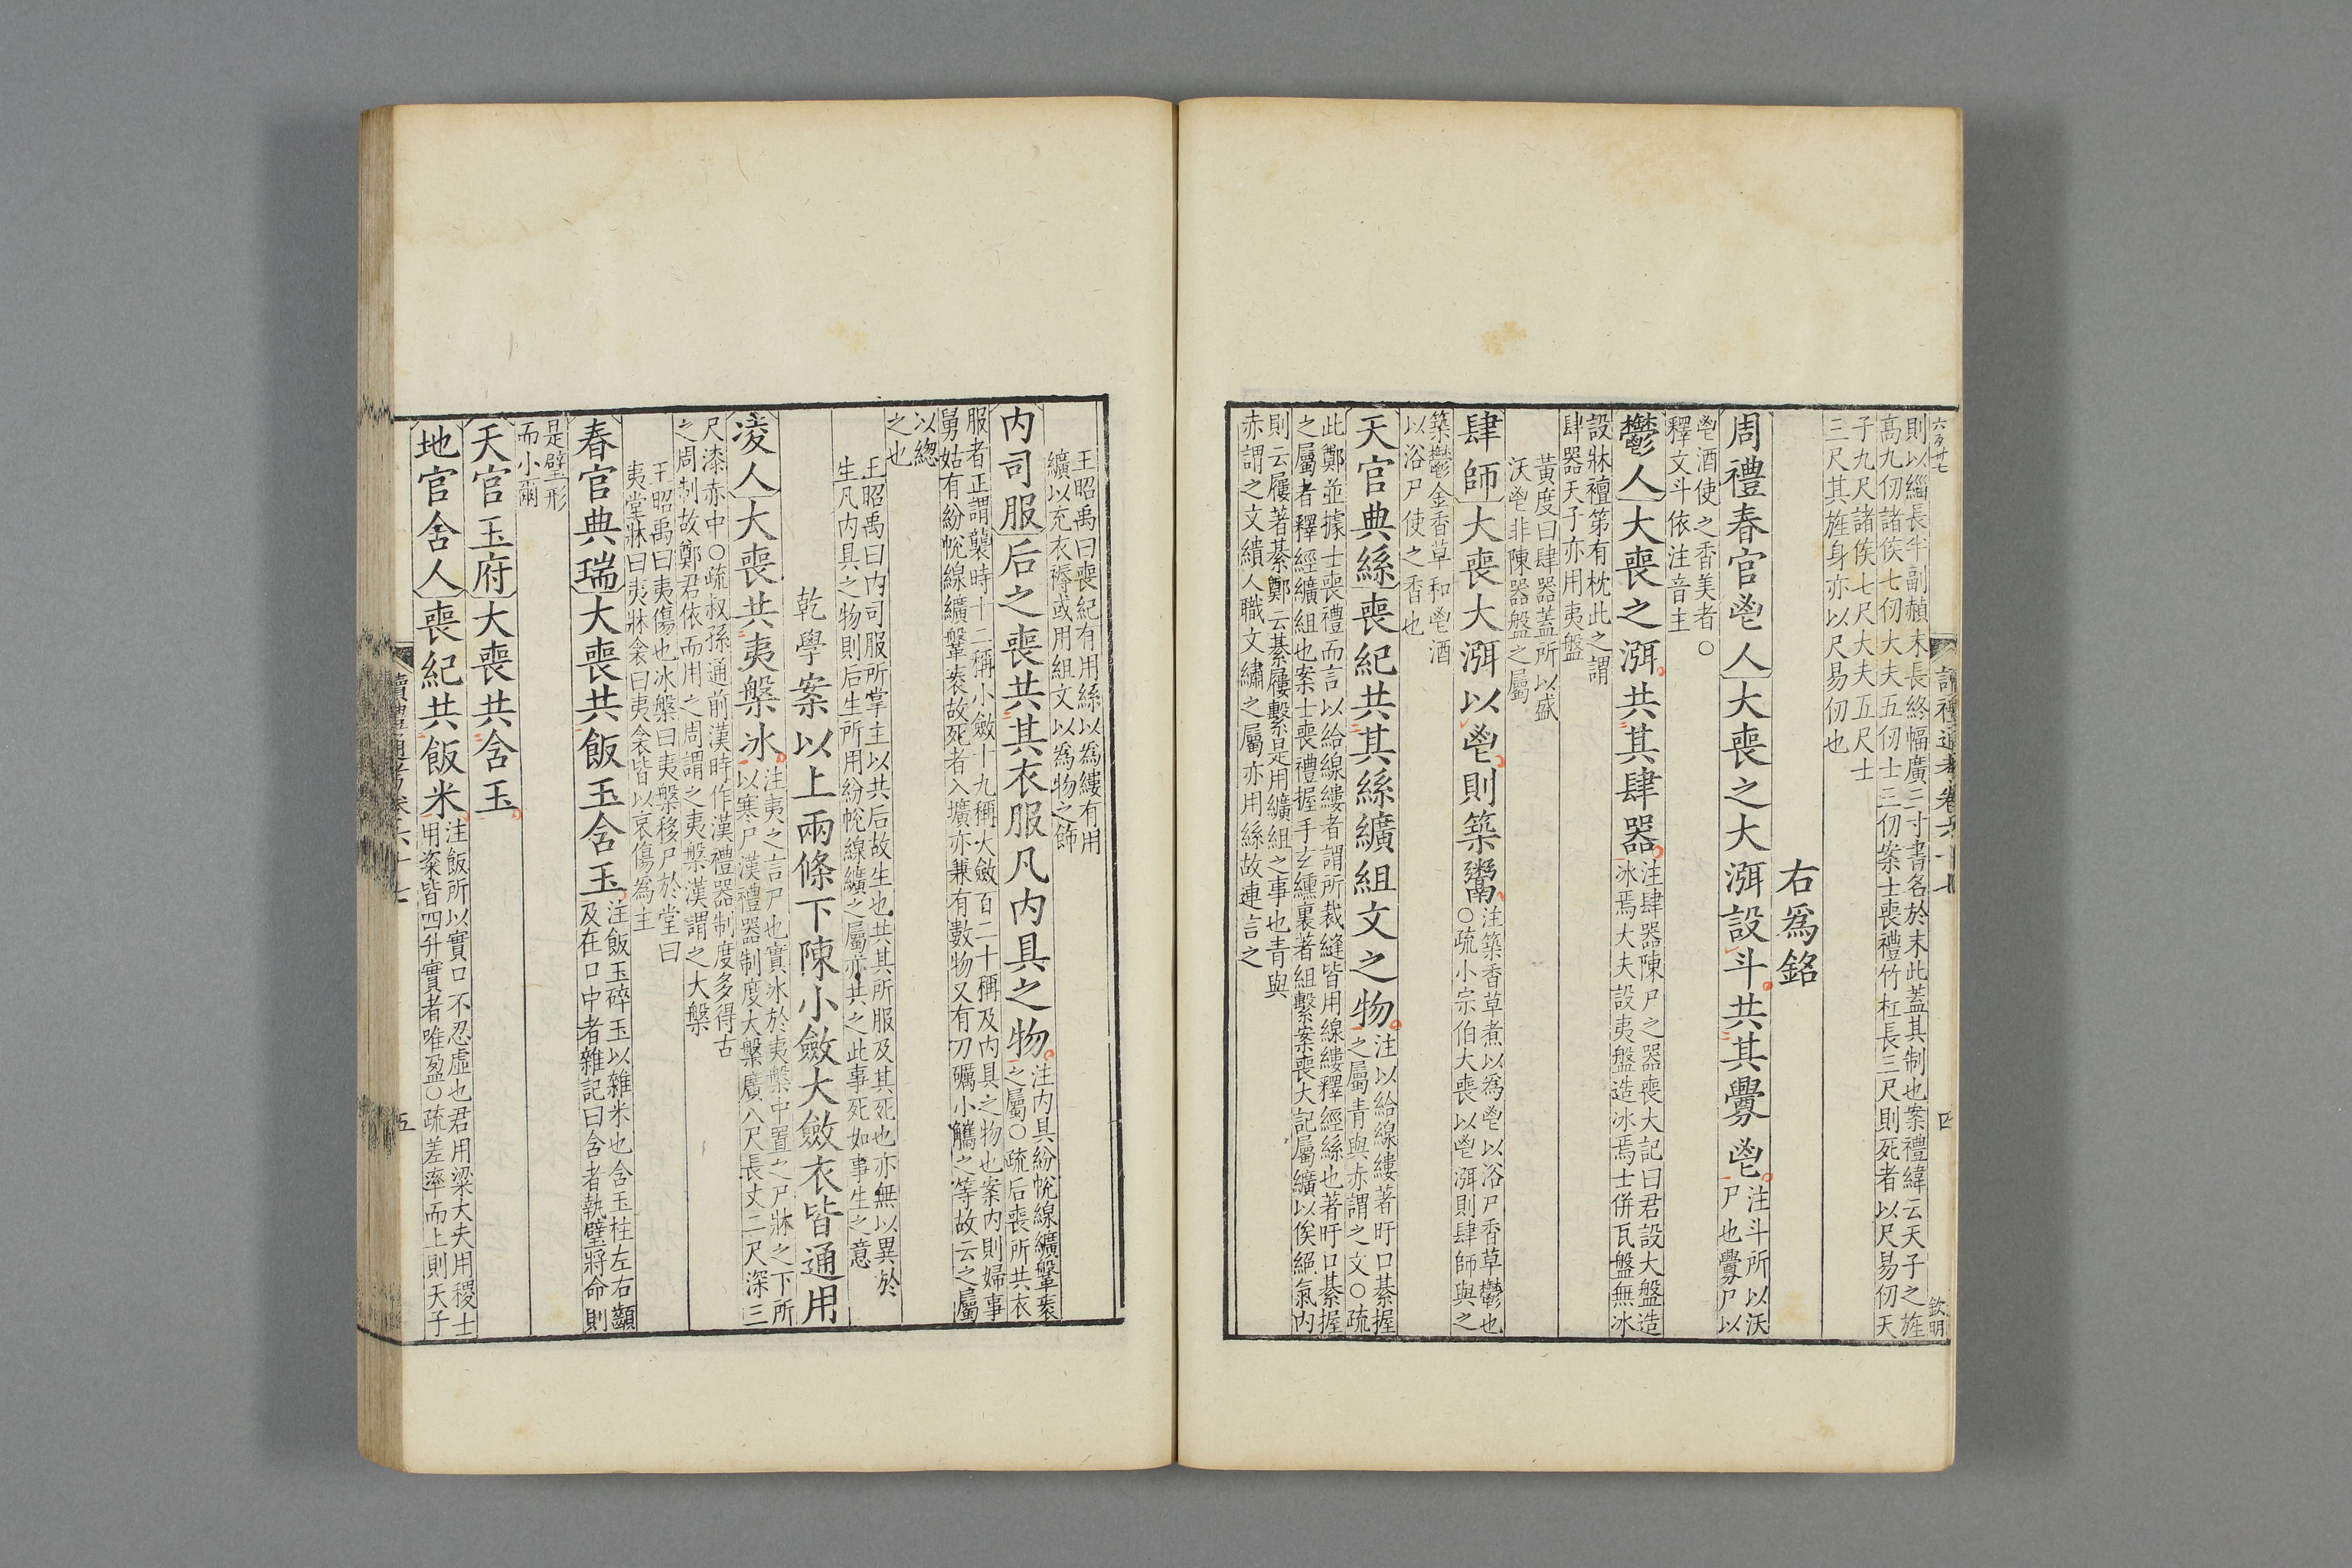 則以緇長半副赬末長終幅廣三寸書名於末此蓋其制也案禮緯云天子之旌
高九仞諸侯七仞大夫五仞士三仞案士喪禮竹杠長三尺則死者以尺易仞天
子九尺諸侯七尺大夫五尺士
三尺其旌身亦以尺易仞也
右爲銘
周禮春官鬯人大喪之大渳設斗共其釁鬯注斗所以沃
尸也釁尸以
鬯酒使之香美者○
釋文斗依注音主
鬱人大喪之渳共其肆器注肆器陳尸之器喪大記曰君設大盤造
冰焉大夫設夷盤造冰焉士併瓦盤無冰
設牀襢第有枕此之謂
肆器天子亦用夷盤
黃度曰肆器蓋所以盛
沃鬯非陳器盤之屬
肆師大喪大渳以鬯則築鬻注築香草煮以爲鬯以浴尸香草鬱也
○疏小宗伯大喪以鬯渳則肆師與之
築鬱金香草和鬯酒
以浴尸使之香也
天官典絲喪紀共其絲纊組文之物注以給線縷著盱口綦握
之屬青與赤謂之文○疏
此鄭並據士喪禮而言以給線縷者謂所裁縫皆用線縷釋經絲也著盱口綦握
之屬者釋經纊組也案士喪禮握手玄纁裏著組繫案喪大記屬纊以俟絕氣內
則云屨著綦鄭云綦屨繫是用纊組之事也青與
赤謂之文繢人職文繡之屬亦用絲故連言之
王昭禹曰喪紀有用絲以爲縷有用
纊以充衣褥或用組文以爲物之飾
內司服后之喪共其衣服凡內具之物注內具紛帨線纊鞶袠
之屬○疏后喪所共衣
服者正謂襲時十二稱小斂十九稱大斂百二十稱及內具之物也案內則婦事
舅姑有紛帨線纊鞶袠故死者入壙亦兼有數物又有刀礪小觿之等故云之屬
以緫
之也
王昭禹曰內司服所掌主以共后故生也共其所服及其死也亦無以異於
生凡內具之物則后生所用紛帨線纊之屬亦共之此事死如事生之意
乾學案以上兩條下陳小斂大斂衣皆通用
凌人大喪共夷槃冰注夷之言尸也實冰於夷槃中置之尸牀之下所
以寒尸漢禮器制度大槃廣八尺長丈二尺深三
尺漆赤中○疏叔孫通前漢時作漢禮器制度多得古
之周制故鄭君依而用之周謂之夷槃漢謂之大槃
王昭禹曰夷傷也冰槃曰夷槃移尸於堂曰
夷堂牀曰夷牀衾曰夷衾皆以哀傷爲主
春官典瑞大喪共飯玉含玉注飯玉碎玉以雜米也含玉柱左右顚
及在口中者雜記曰含者執璧將命則
是璧形
而小爾
天官玉府大喪共含玉
地官舍人喪紀共飯米注飯所以實口不忍虛也君用粱大夫用稷士
用粢皆四升實者唯盈○疏差率而上則天子